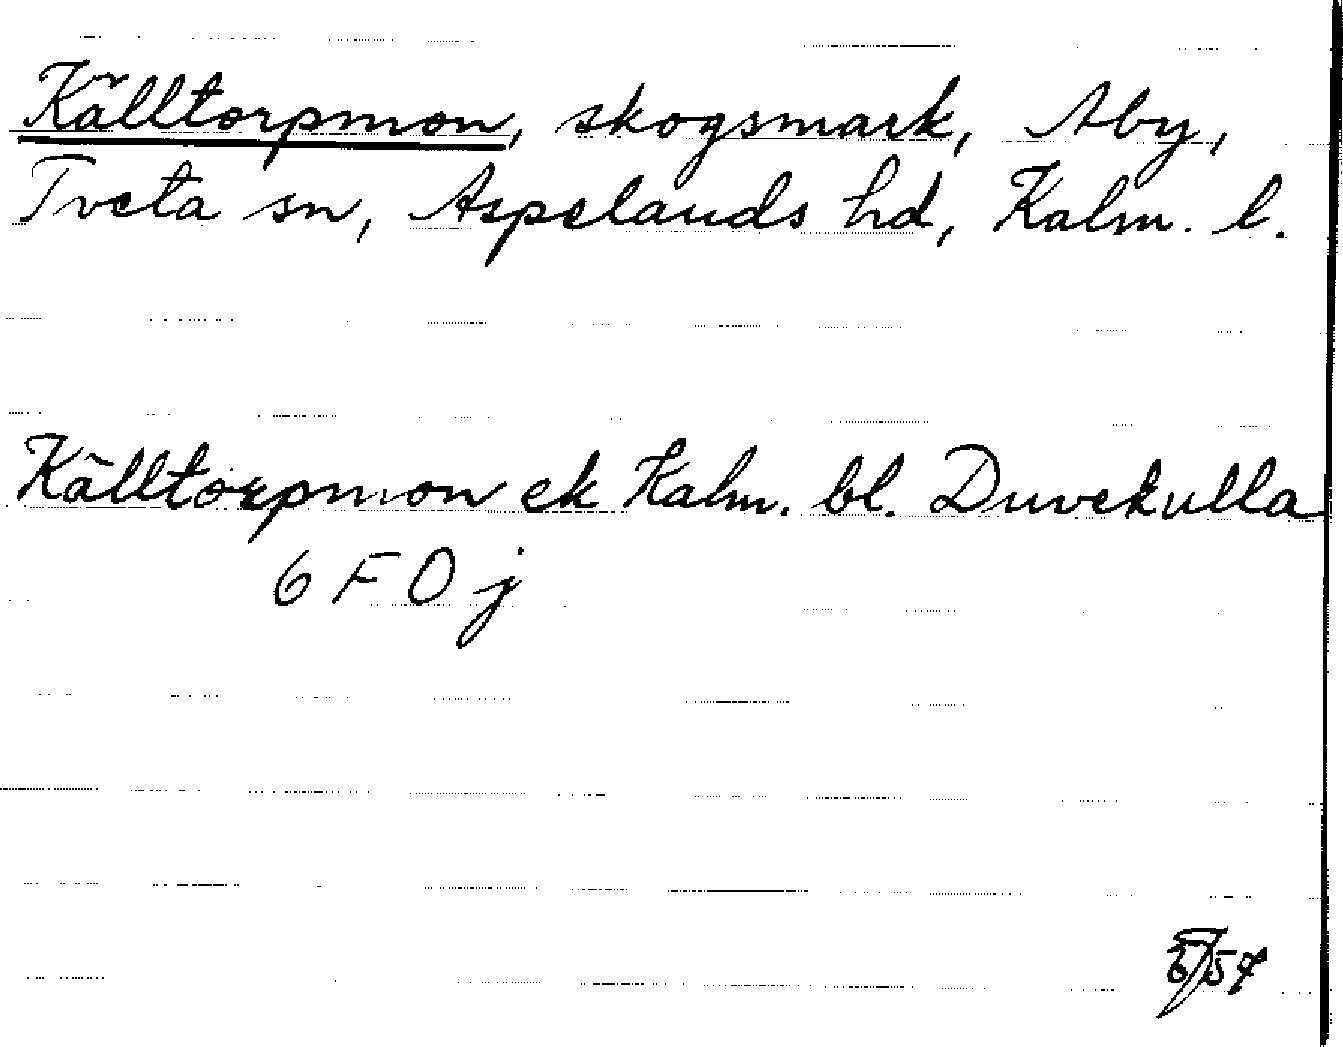 Källtorpmon, skogsmark, Aby,
Tveta sn, Aspelands hd, Kalm. l.
Källtorpmon ek Kalm. bl. Duvekulla
6 F 0 j